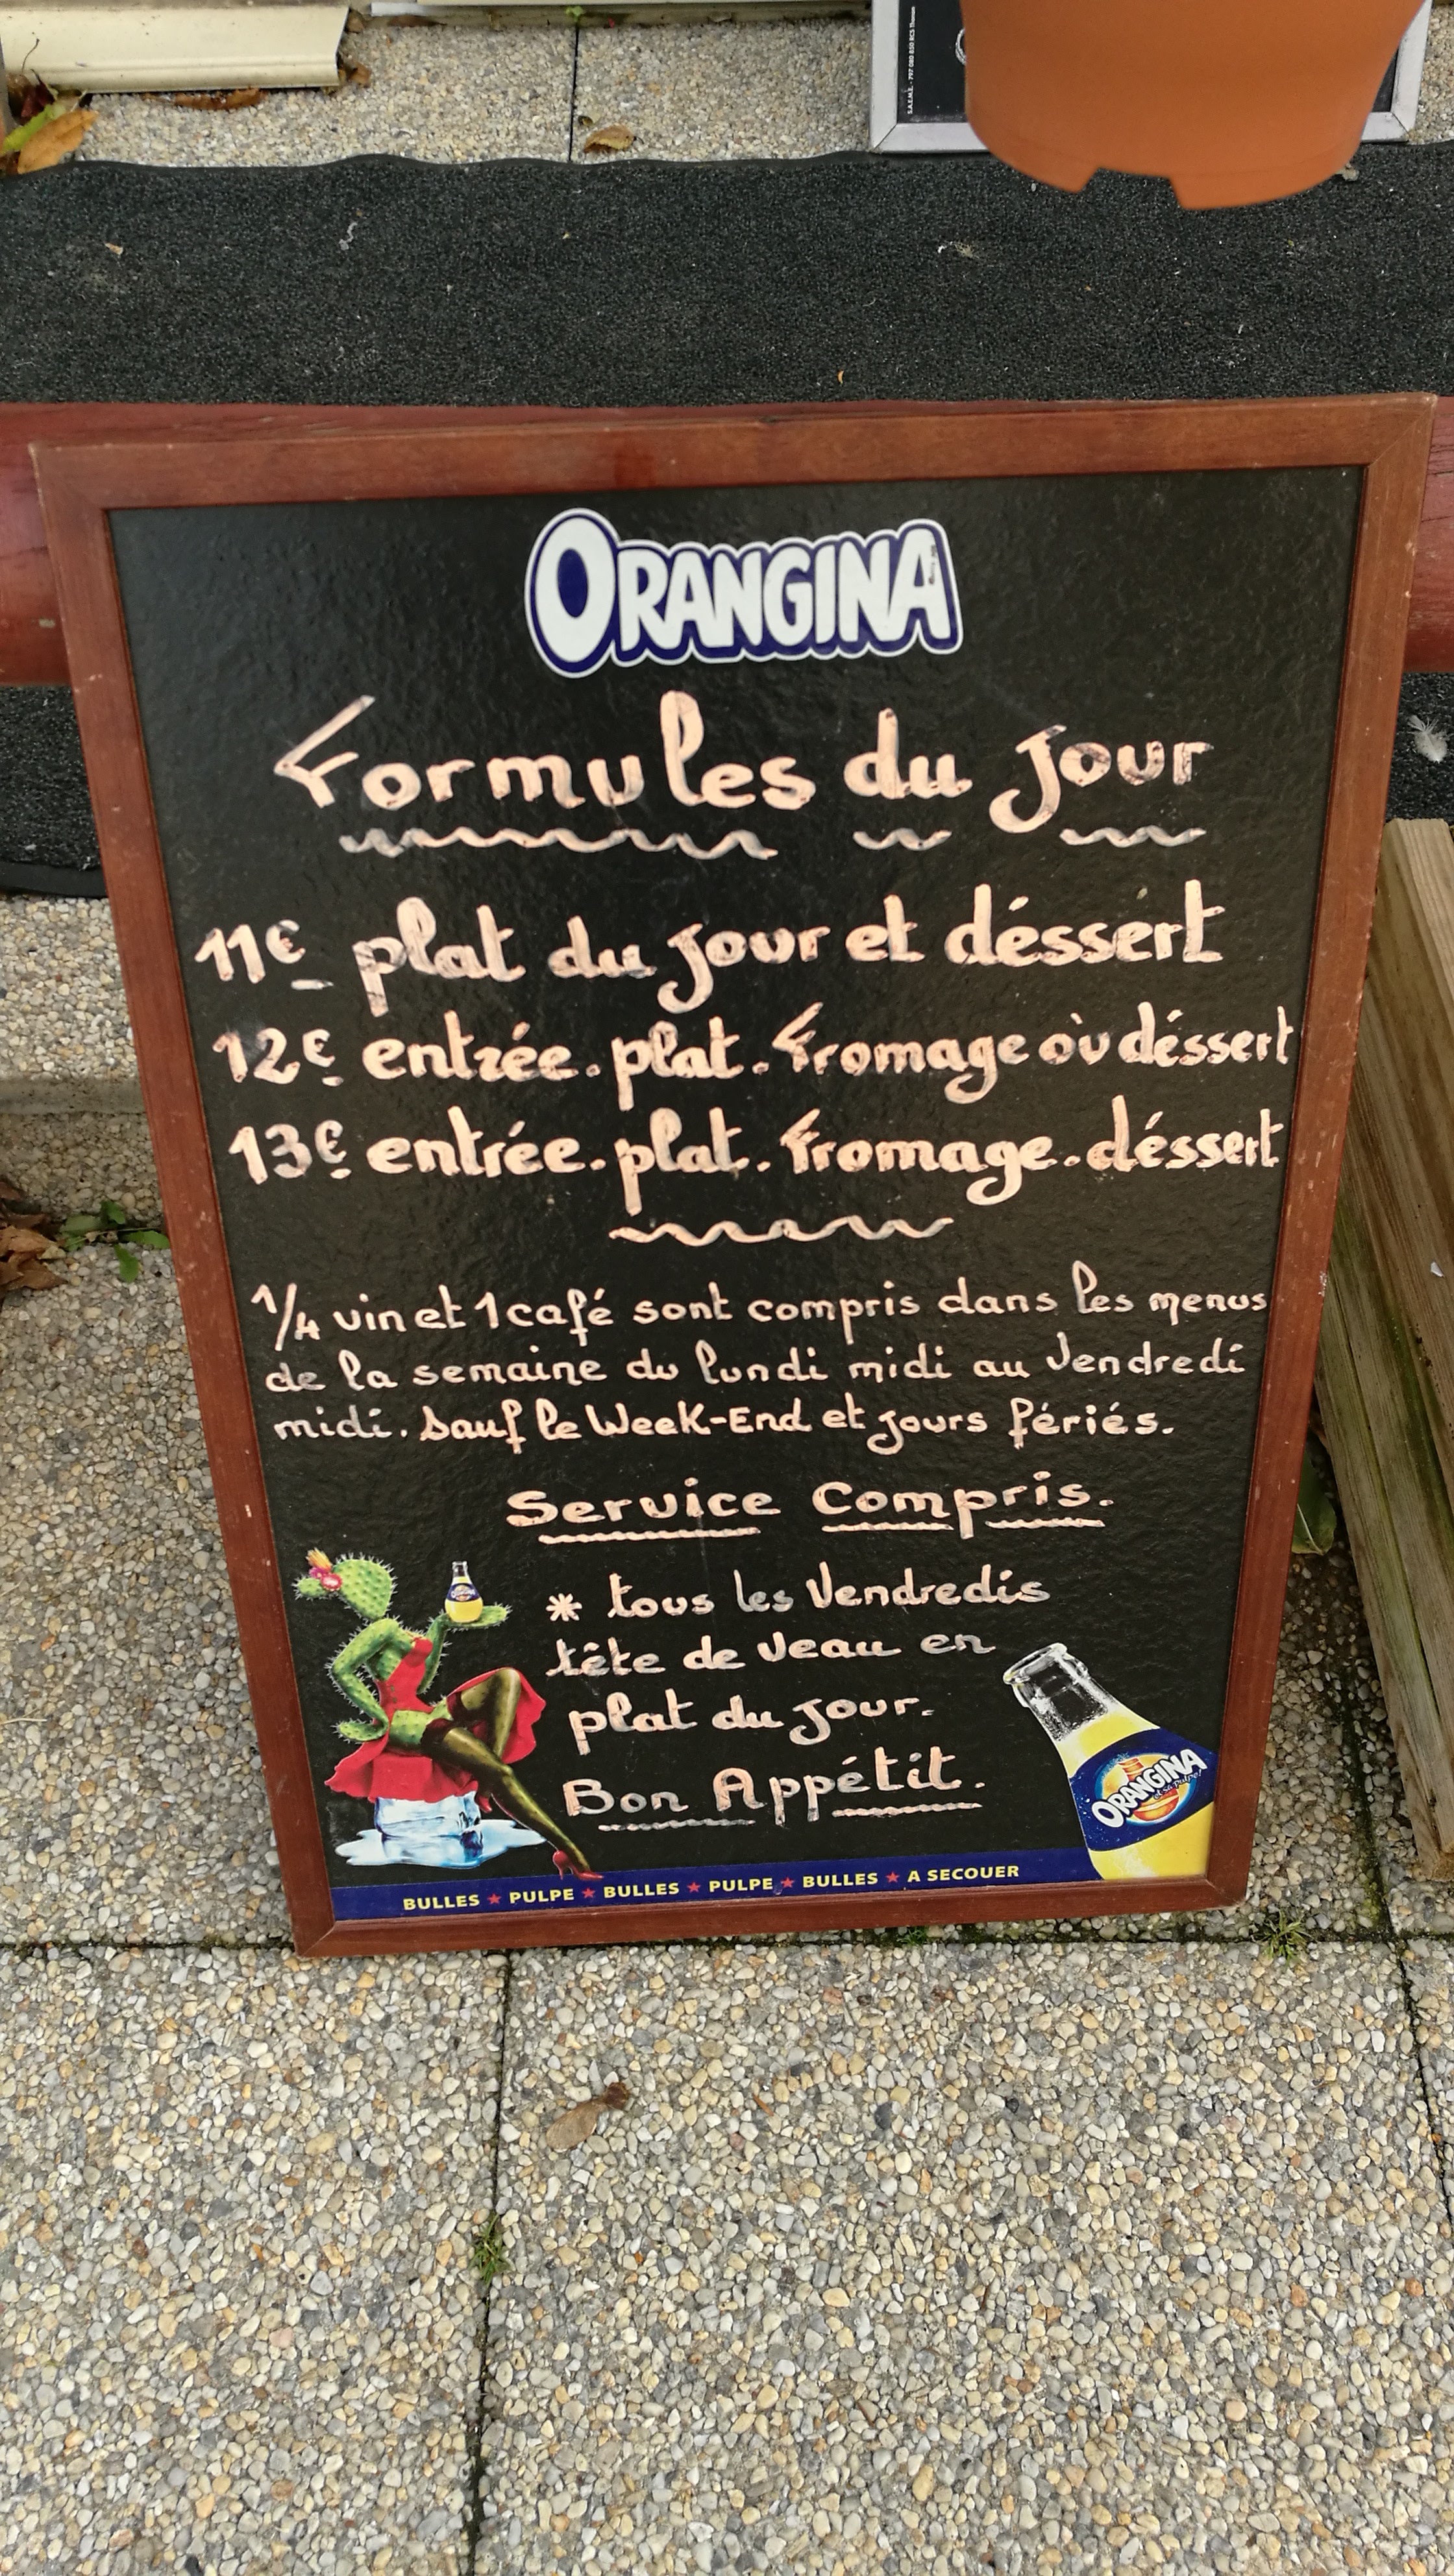 S.A.E.M.E. - 797 080 850 RCS Thonon
ORANGINA
Formules du jour
11€ plat du jour et déssert
12€ entrée. plat. Fromage où déssert
13€ entrée. plat. Fromage. déssert
1/4 vin et 1 café sont compris dans les menus
de la semaine du lundi midi au Vendredi
midi. Sauf le Week-End et jours fériés.
Service Compris.
* tous les Vendredis
tête de veau en
plat du jour.
Bon Appétit.
ORANGINA
BULLES ★ PULPE ★ BULLES ★ PULPE ★ BULLES ★ A SECOUER